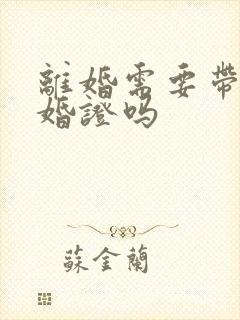 離婚需要帶
婚證嗎
蘇金蘭